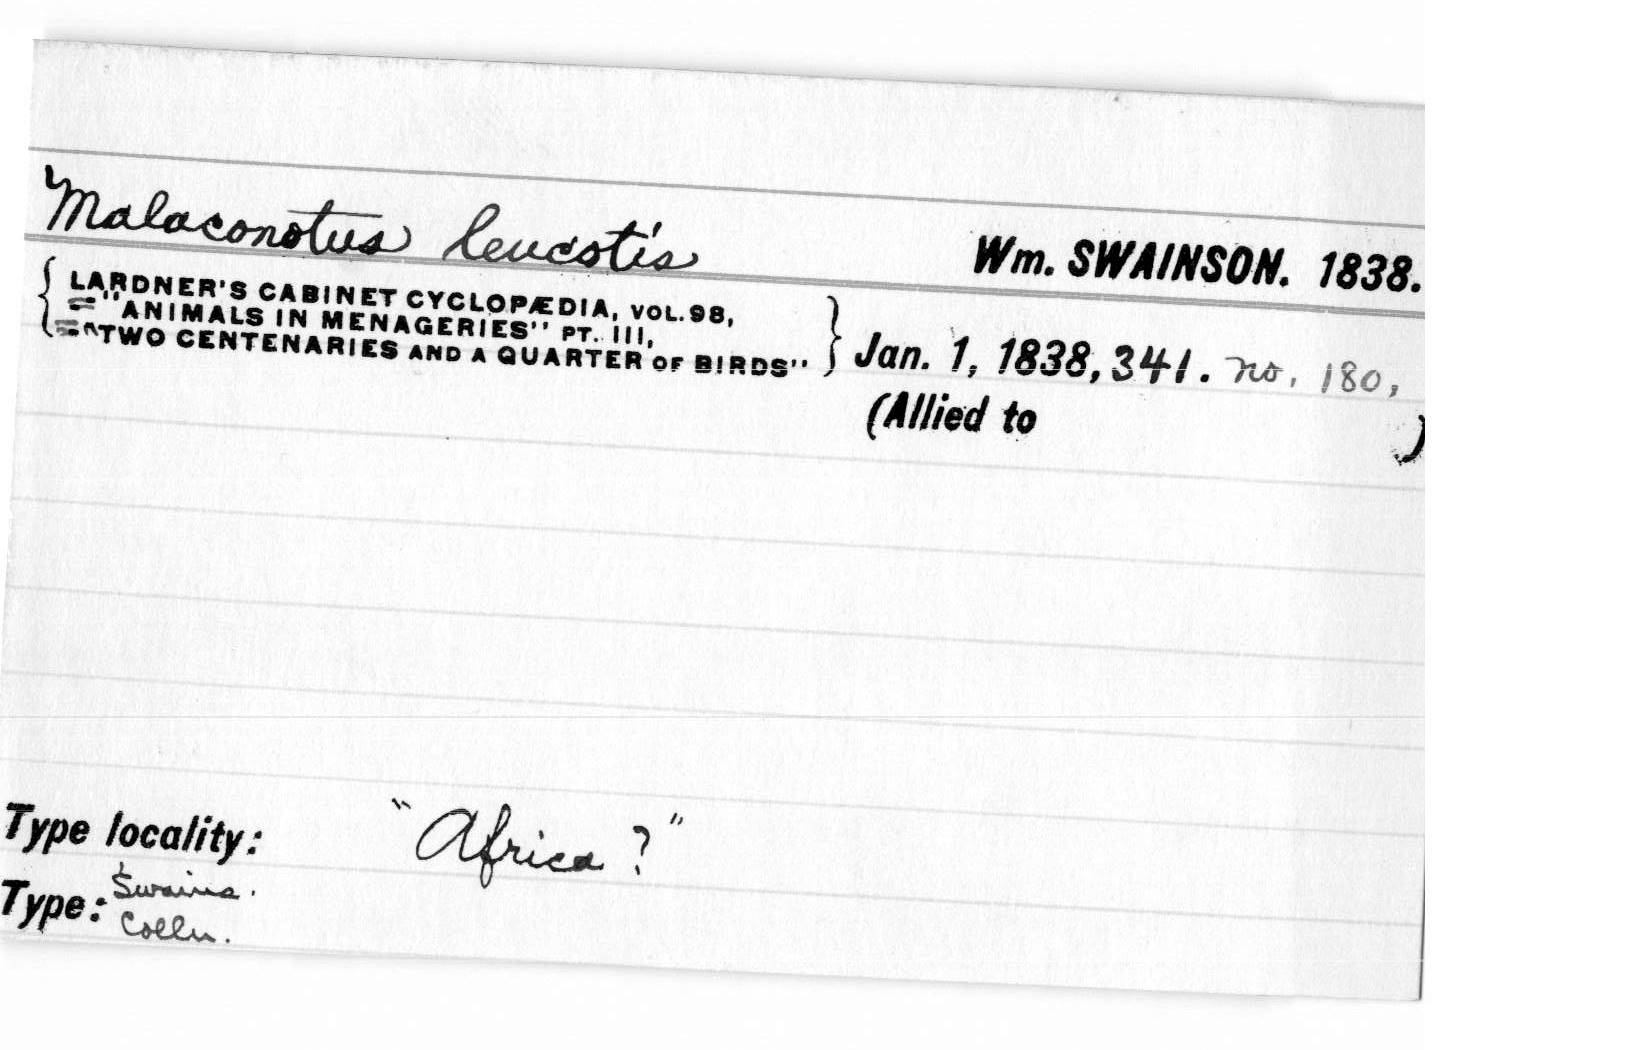 Malaconotus leucotis Wm. SWAINSON. 1838.
{ LARDNER'S CABINET CYCLOPÆDIA, VOL. 98,
= "ANIMALS IN MENAGERIES" PT. III,
= "TWO CENTENARIES AND A QUARTER OF BIRDS" } Jan. 1, 1838, 341. no. 180,
(Allied to )
Type locality: "Africa ?"
Type: Swains.
Colln.